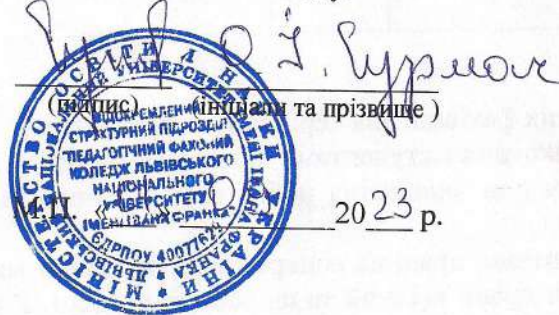 О. І. Гурмак
(підпис) (ініціали та прізвище)
МІНІСТЕРСТВО ОСВІТИ І НАУКИ УКРАЇНИ
ЛЬВІВСЬКИЙ НАЦІОНАЛЬНИЙ УНІВЕРСИТЕТ ІМЕНІ ІВАНА ФРАНКА
ВІДОКРЕМЛЕНИЙ
СТРУКТУРНИЙ ПІДРОЗДІЛ
ПЕДАГОГІЧНИЙ ФАХОВИЙ
КОЛЕДЖ ЛЬВІВСЬКОГО
НАЦІОНАЛЬНОГО
УНІВЕРСИТЕТУ
ІМЕНІ ІВАНА ФРАНКА
ЄДРПОУ
М.П. 2023 р.